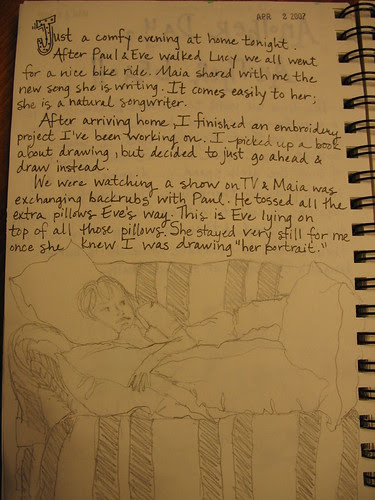 APR 2 2007
Just a comfy evening at home tonight.
After Paul & Eve walked Lucy we all went
for a nice bike ride. Maia shared with me the
new song she is writing. It comes easily to her;
she is a natural songwriter.
After arriving home, I finished an embroidery
project I've been working on. I picked up a book
about drawing, but decided to just go ahead &
draw instead.
We were watching a show on TV & Maia was
exchanging backrubs with Paul. He tossed all the
extra pillows Eve's way. This is Eve lying on
top of all those pillows. She stayed very still for me
once she knew I was drawing "her portrait."